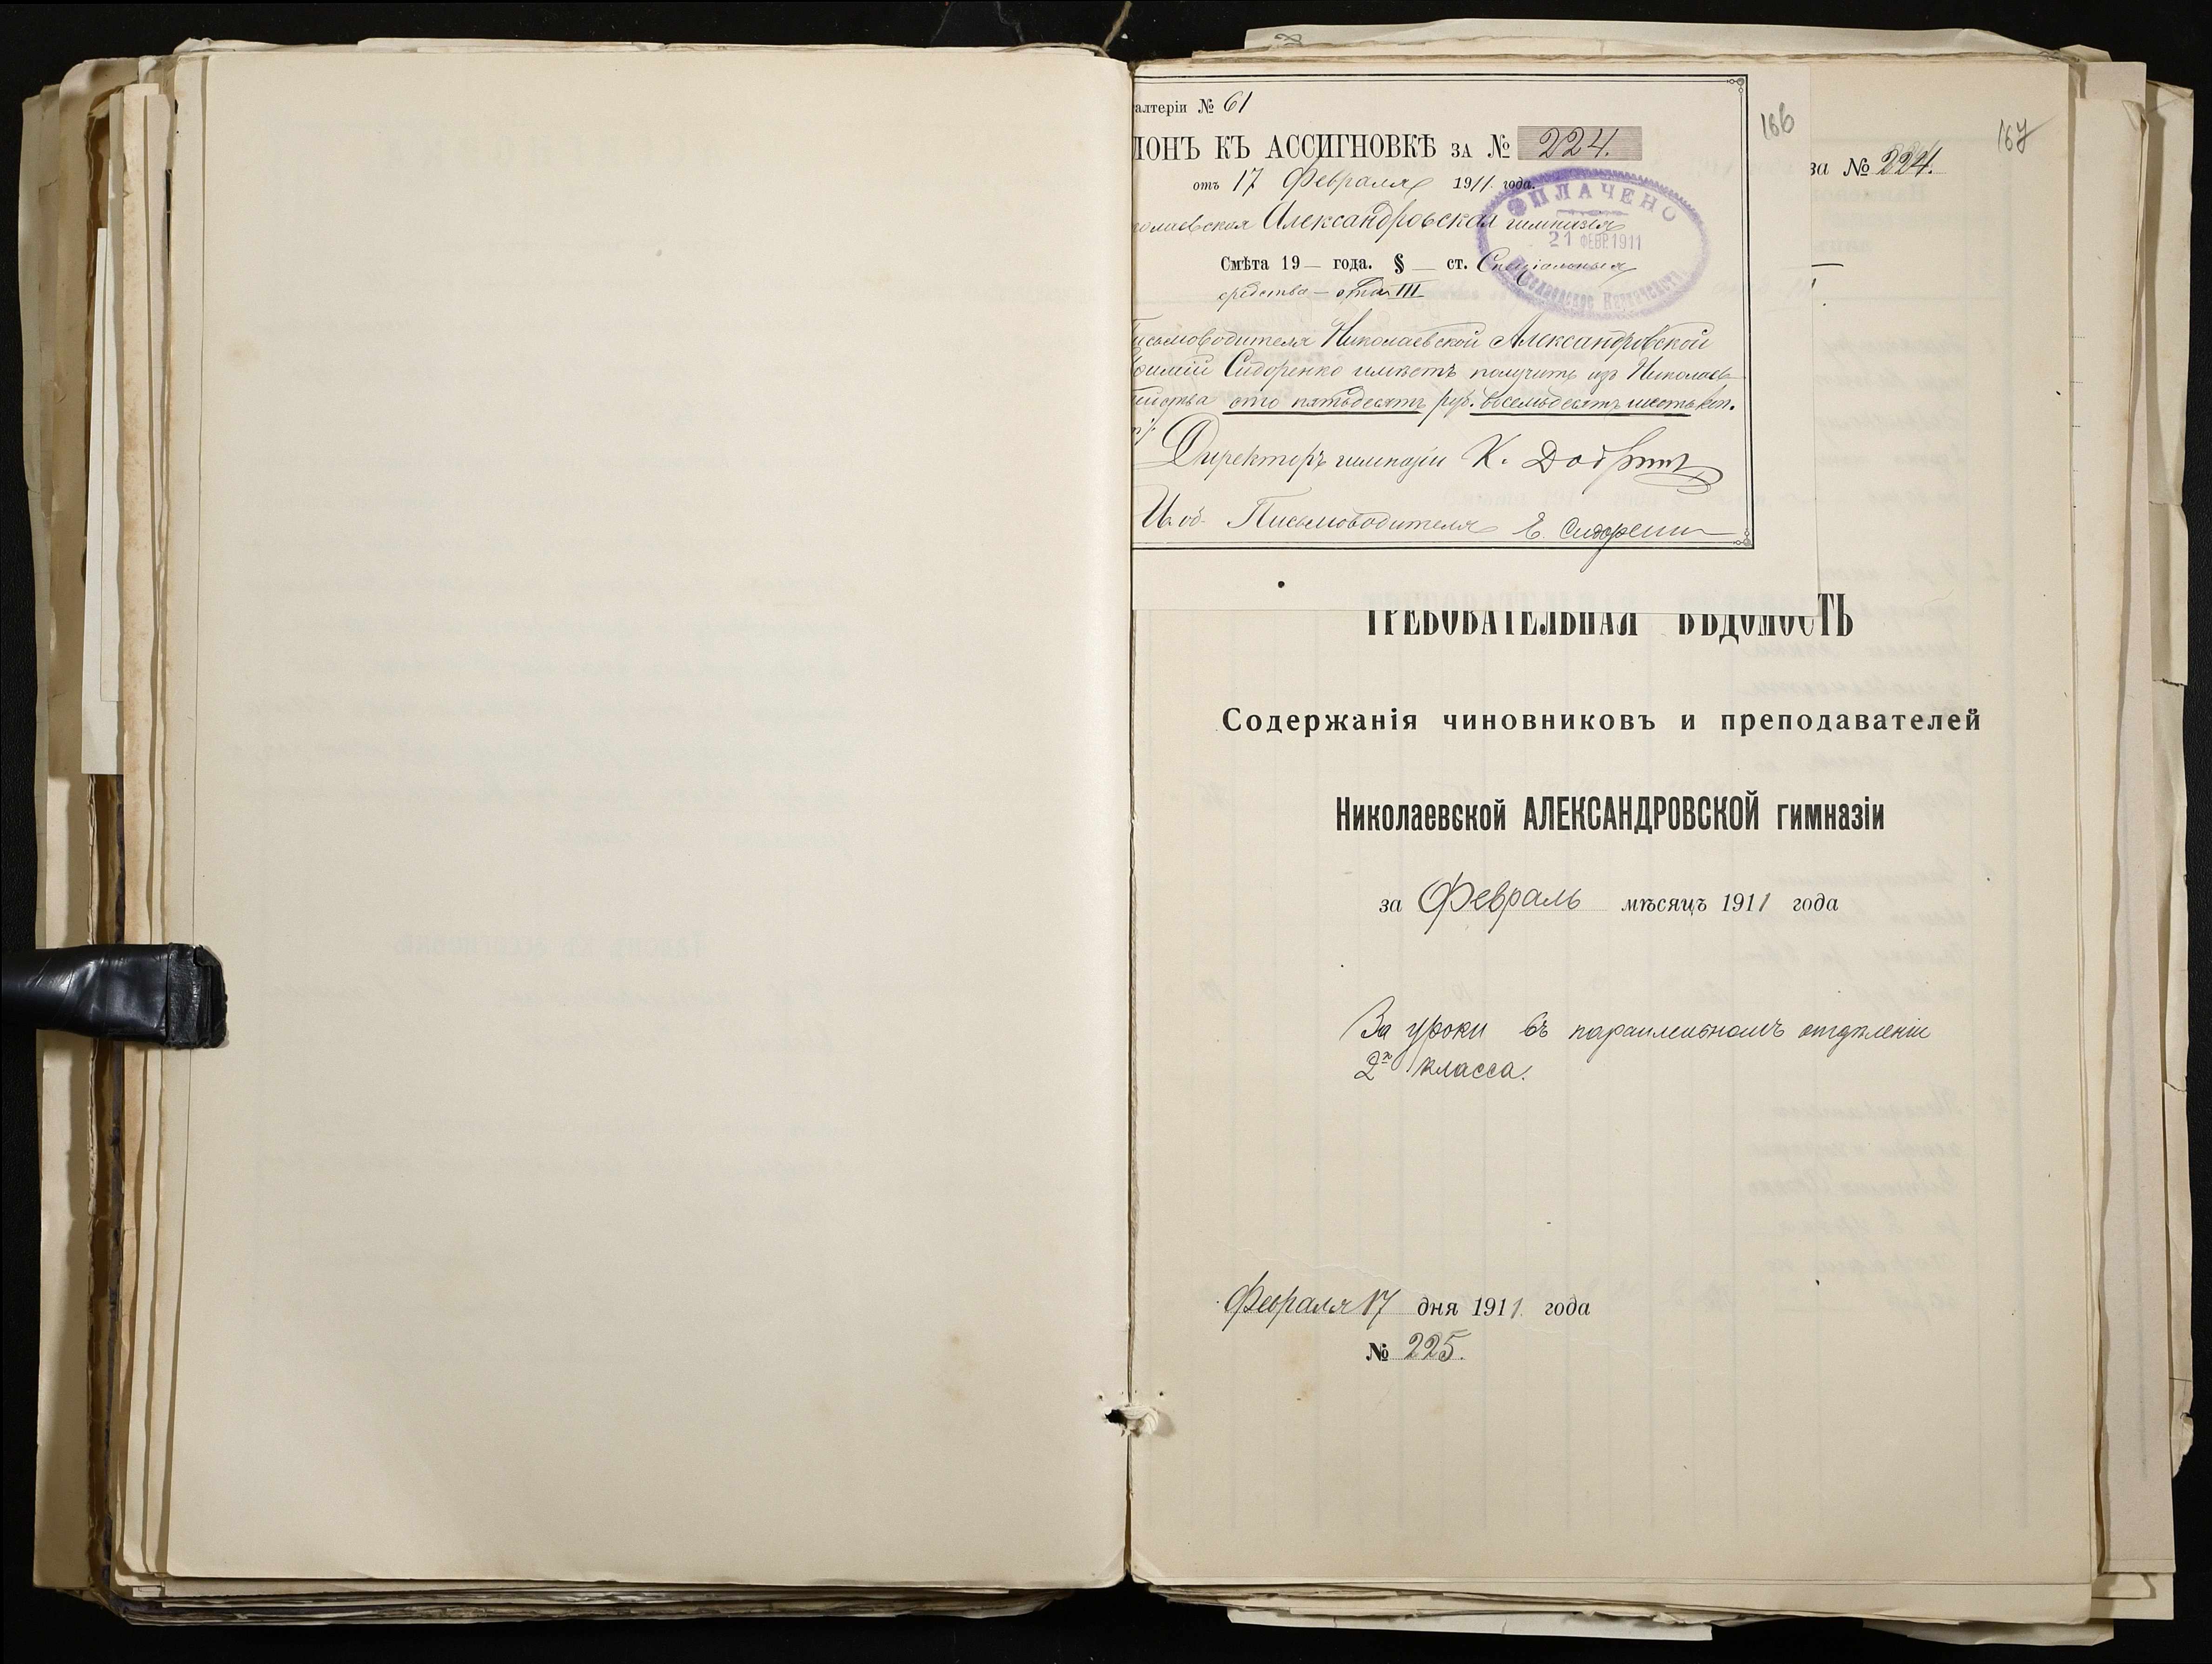 алтеріи № 61
166
167
ЛОНЪ КЪ АССИГНОВКѢ ЗА № 224.
за № 224.
отъ 17 Февраля 1911 года.
ОПЛАЧЕНО
21 ФЕВР 1911
Николаевское Казначейство
колаевская Александровская гимназія
Смѣта 19— года. § — ст. Спеціальныя
средства —  III
исьмоводителя Николаевской Александровской
Сидоренко имѣетъ получить изъ Николаев
ейства сто пятьдесятъ руб. восемьдесятъ шесть коп.
Директоръ гимназіи К.
И. об. Письмоводителя Е. Сидоренко
ТРЕБОВАТЕЛЬНАЯ ВѢДОМОСТЬ
Содержанія чиновниковъ и преподавателей
Николаевской АЛЕКСАНДРОВСКОЙ гимназіи
за Февраль мѣсяцъ 1911 года
За уроки въ параллельномъ отдѣленіи
2го класса.
Февраля 17 дня 1911 года
№ 225.